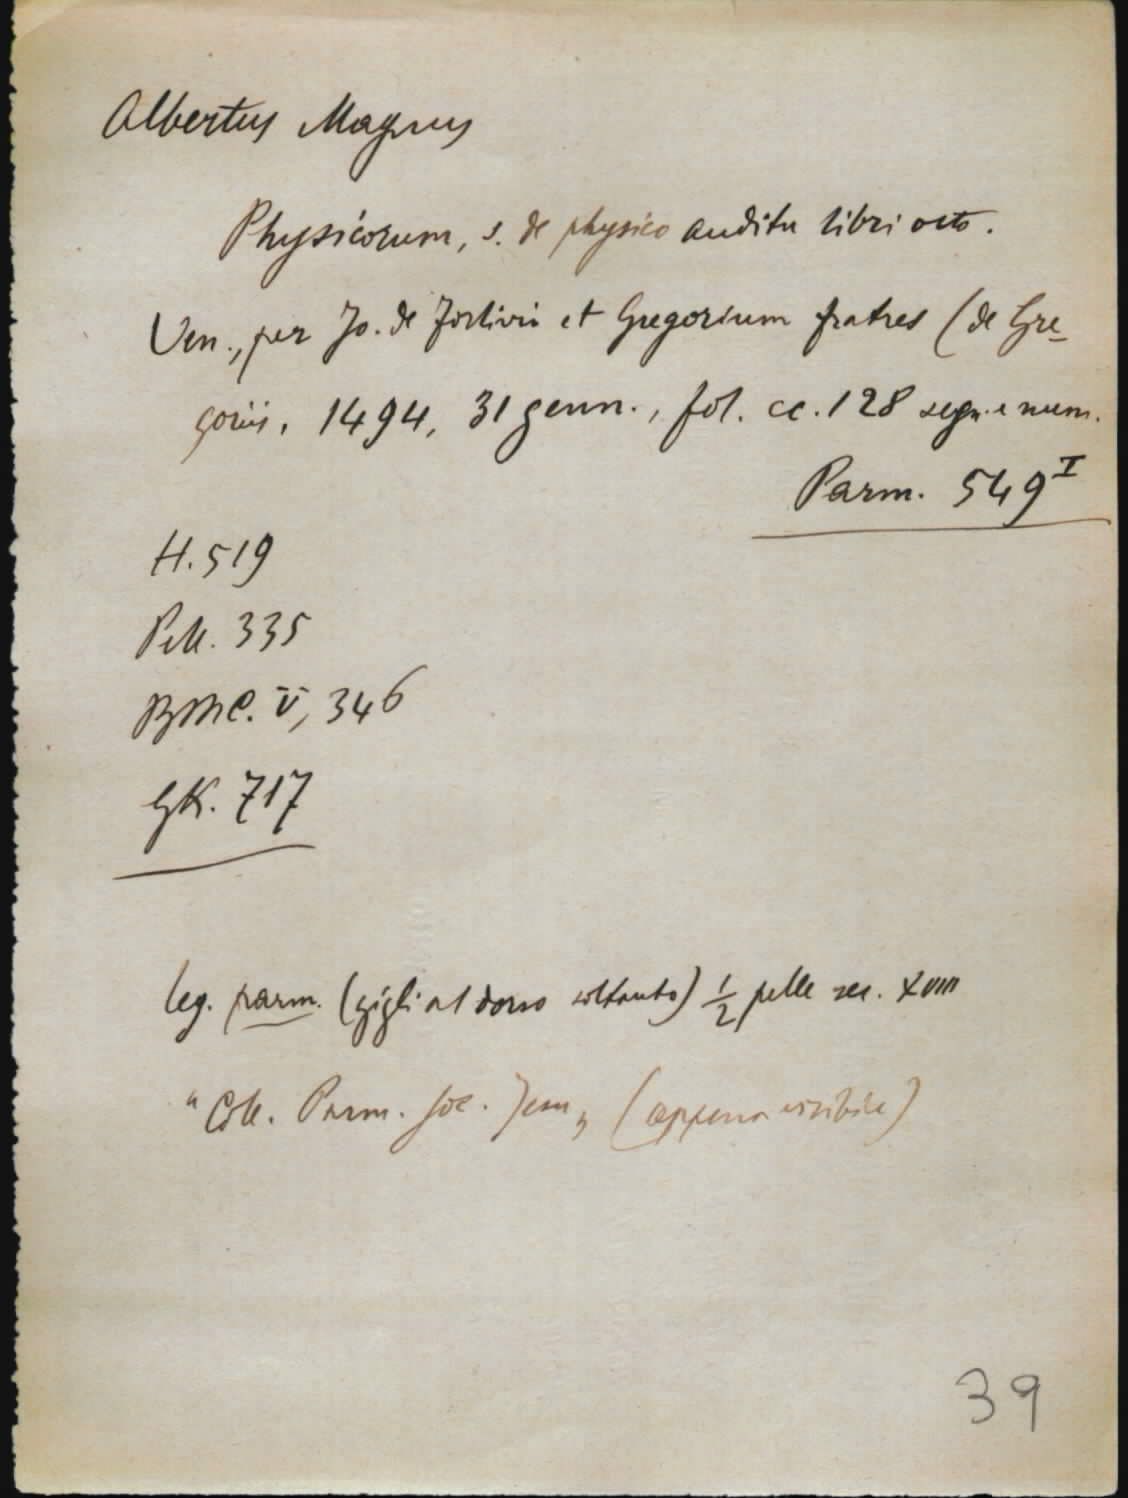 Albertus Magnus
Physicorum, s. de physico auditu libri octo.
Ven., per Jo. de Forlivio et Gregorium fratres (de Gre-
goriis, 1494, 31 genn., fol. cc. 128 segn. e num.
Parm. 549 I
H. 519
Pell. 335
BMC. V, 346
GK. 717
leg. parm. (gigli al dorso soltanto) 1/2 pelle sec. XVIII
"Coll. Parm. Soc. Jesu" (appena visibile)
39